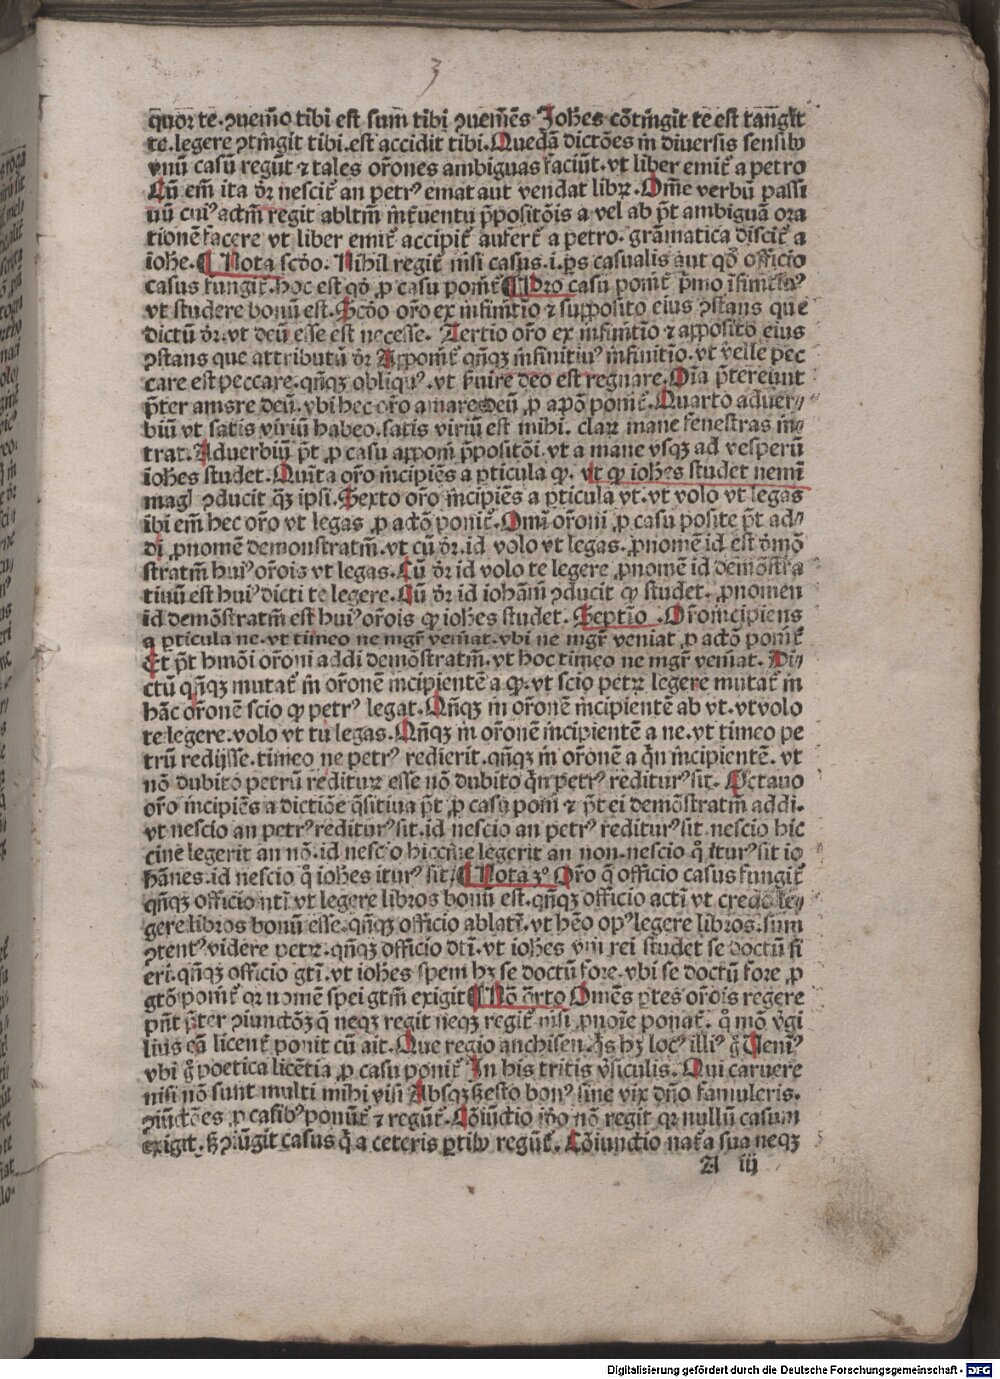 3
quor te. ꝯuenio tibi est sum tibi ꝯueniēs Johēs cōtingit te est tangit
te. legere ꝯtingit tibi. est accidit tibi. Quedā dictōes in diuersis sensibꝰ
vnū casū regūt ⁊ tales orōnes ambiguas faciūt. vt liber emit᷑ a petro
Cū em̄ ita dr̄ nescit᷑ an petrꝰ emat aut vendat librꝫ. Om̄e verbū passi
uū cuiꝰ actiū regit abltm̄ int̄uentu p̄positōis a vel ab pt̄ ambiguā ora
tionē facere vt liber emit᷑ accipit᷑ aufert᷑ a petro. grāmatica discit᷑ a
iohe. ¶ Nota scd̄o. Nihil regit᷑ nisi casus. i. ps casualis aut qd̄ officio
casus fungit᷑. hoc est qd̄ ꝓ casu ponit᷑ ¶ Pro casu ponit᷑ p̄mo
vt studere bonū est. Scd̄o orō ex infinitīo ⁊ supposito eius ꝯstans que
dictū dr̄. vt deū esse est necesse. Tertio orō ex infinitīo ⁊ apposito eius
ꝯstans que attributū dr̄ Apponit᷑ qn̄qꝫ infinitiuꝰ infinitīo. vt velle pec
care est peccare. qn̄qꝫ obliquꝰ. vt ẜuire deo est regnare. Oīa p̄tereunt
p̄ter amare deū. vbi hec orō amare deū ꝓ apōo ponit᷑. Quarto aduer⸗
biū vt satis viriū habeo. satis viriū est mihi. clarꝫ mane fenestras in
trat. Aduerbiū pt̄ ꝓ casu apponi p̄positōi. vt a mane vsqꝫ ad vesperū
iohēs studet. Quīta orō incipiēs a ꝑticula ꝙ. vt ꝙ iohēs studet nemi
magꝭ ꝯducit qꝫ ipsi. Sexto orō incipiēs a ꝑticula vt. vt volo vt legas
ibi em̄ hec orō vt legas ꝓ actō ponit᷑. Omi orōni ꝓ casu posite pt̄ ad⸗
di ꝓnomē demonstratiū. vt cū dr̄. id volo vt legas. ꝓnomē id est demō
stratiū huiꝰ orōis vt legas. Cū dr̄ id volo te legere ꝓnomē id demōstra
tiuū est huiꝰ dicti te legere. Cū dr̄ id iohānī ꝯducit ꝙ studet. ꝓnomen
id demōstratiū est huiꝰ orōis ꝙ iohēs studet. Septīo. Orō incipiens
a ꝑticula ne. vt timeo ne mgr̄ veniat. vbi ne mgr̄ veniat ꝓ actō ponit᷑
Et pt̄ hmōi orōni addi demōstratiū. vt hoc timeo ne mgr̄ veniat. Di⸗
ctū qn̄qꝫ mutat᷑ in orōnē incipientē a ꝙ. vt scio petrꝫ legere mutat᷑ in
hāc orōnē scio ꝙ petrꝰ legat. Qn̄qꝫ in orōnē incipientē ab vt. vt volo
te legere. volo vt tu legas. Qn̄qꝫ in orōnē incipientē a ne. vt timeo pe
trū redijsse. timeo ne petrꝰ redierit. qn̄qꝫ in orōnē a qn̄ incipientē. vt
nō dubito petrū redituꝝ esse nō dubito qn̄ petrꝰ rediturꝰ sit. Octauo
orō incipiēs a dictiōe q̄sitiua pt̄ ꝓ casu poni ⁊ pt̄ ei demōstratiū addi.
vt nescio an petrꝰ rediturꝰ sit. id nescio an petrꝰ rediturꝰ sit. nescio hic
cine legerit an nō. id nescio hiccine legerit an non. nescio q̄ iturꝰ sit io
hānes. id nescio q̄ iohēs iturꝰ sit. ¶ Nota 3ꝰ Orō q̄ officio casus fungit᷑
qn̄qꝫ officio ntī vt legere libros bonū est. qn̄qꝫ officio actī vt credo le⸗
gere libros bonū esse. qn̄qꝫ officio ablatī. vt heo opꝰ legere libros. sum
ꝯtentꝰ videre petrꝫ. qn̄qꝫ officio dtī. vt iohēs vni rei studet se doctū fi
eri. qn̄qꝫ officio gtī. vt iohēs spem hꝫ se doctū fore. vbi se doctū fore ꝓ
gtō ponit᷑ qꝛ nomē spei gtm̄ exigit ¶ Nō q̄rto Omēs ꝑtes orōis regere
pn̄t p̄ter ꝯiunctōꝫ q̄ neqꝫ regit neqꝫ regit᷑ nisi ꝓ noīe ponat᷑. q̄ mō v̓gi
lius eā licent᷑ ponit cū ait. Que regio anchisen. q̄s hꝫ locꝰ illiꝰ g̊ Veniꝰ
vbi g̊ poetica licētia ꝓ casu ponit᷑ In his tritis v̓siculis. Qui caruere
nisi nō sunt multi mihi visi Absqꝫ bonꝰ sine vix dn̄o famuleris.
ꝯiūctōes ꝓ casibꝰ ponūt᷑ ⁊ regūt᷑. Cōiūctio v̓o nō regit qꝛ nullū casum
exigit. ꝯiūgit casus q̄ a ceteris ꝑtibꝰ regūt᷑. Cōiunctio natᷓa sua neqꝫ
A iij
Digitalisierung gefördert durch die Deutsche Forschungsgemeinschaft - DFG